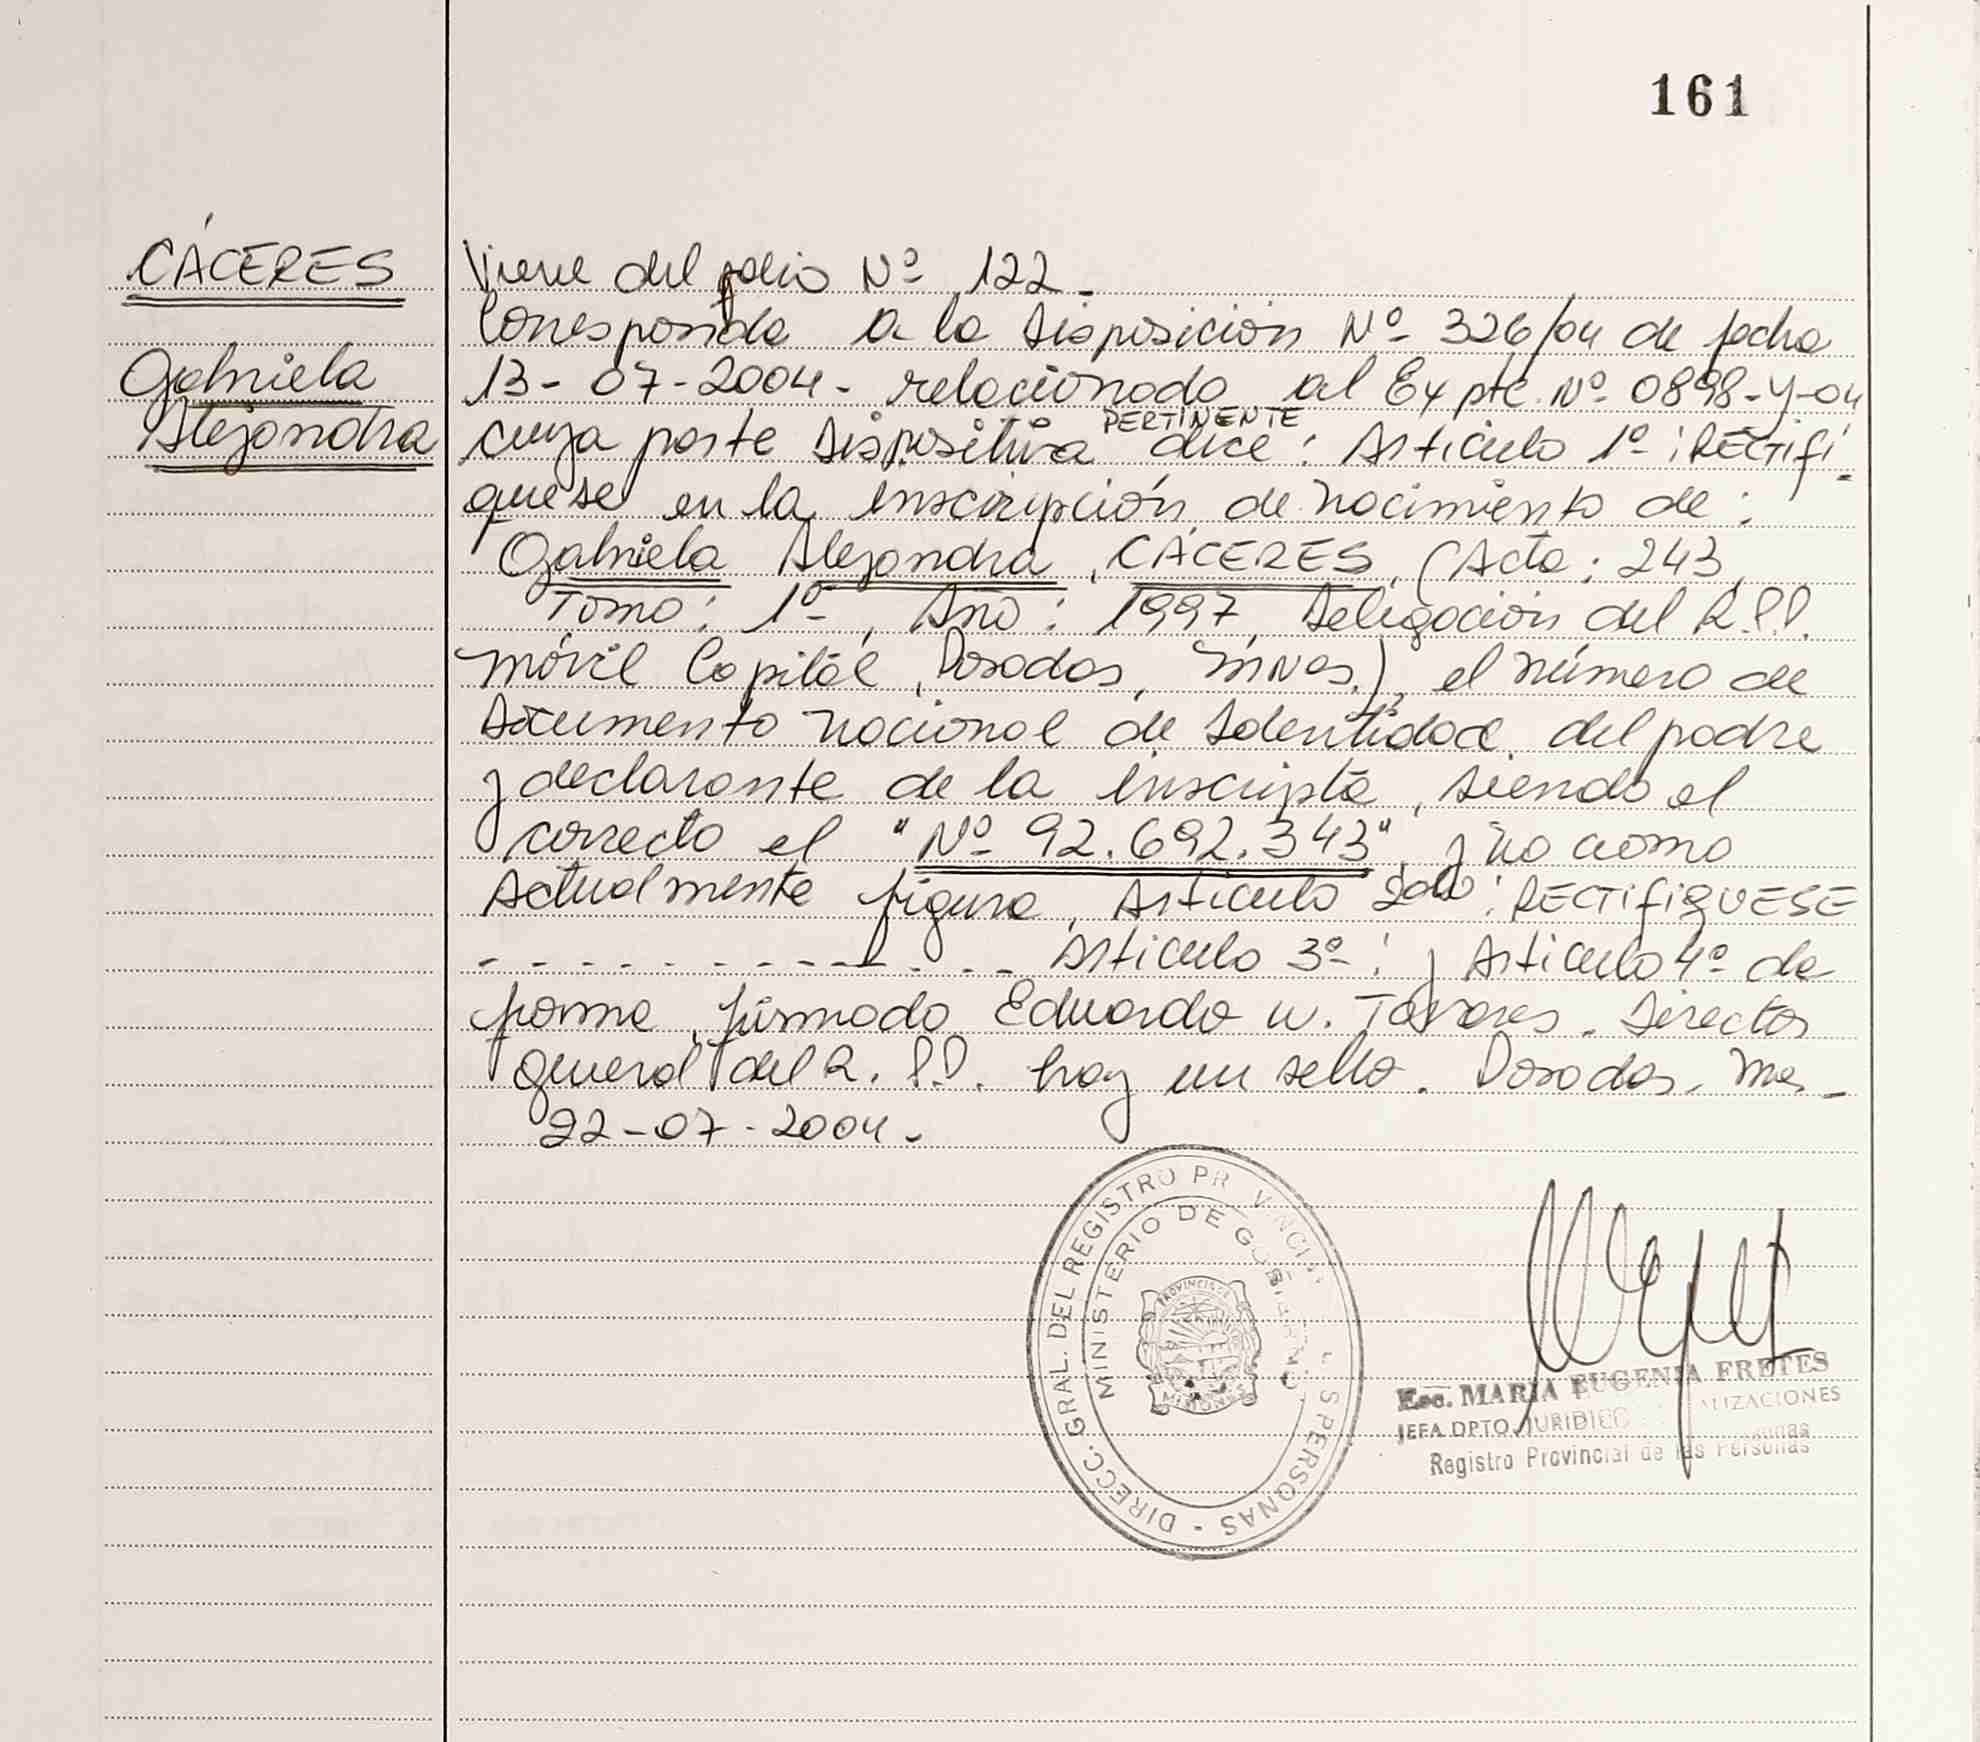 161
CÁCERES
Gabriela
Alejandra
Viene del folio Nº 122.
Corresponde a la Disposición Nº 326/04 de fecha
13-07-2004- relacionado al Expte. Nº 0898-Y-04
cuya parte dispositiva PERTINENTE dice: Artículo 1º: RECTIFÍ-
quese en la inscripción de nacimiento de:
Gabriela Alejandra CÁCERES, (Acta: 243,
Tomo: 1º, Año: 1997, Delegación del R.P.P.
móvil Capital, Posadas, Mnes.), el número de
Documento nacional de Identidad del padre
y declarante de la inscripta, siendo el
correcto el "Nº 92.692.343" y no como
Actualmente figura, Artículo 2do: RECTIFIQUESE
- - - - - - - - - - - - Artículo 3º: y Artículo 4º de
forma, firmado Eduardo W. Tavares. Director
general del R.P.P. hay un sello. Posadas, Mnes-
22-07-2004.-
DIRECC. GRAL. DEL REGISTRO PR VINCI L SPERSONAS -
MINISTERIO DE GOBIERNO
PROVINCIA DE
MISIONES
Esc. MARIA EUGENIA FRETES
JEFA DPTO. JURIDICO ALIZACIONES
Registro Provincial de las Personas